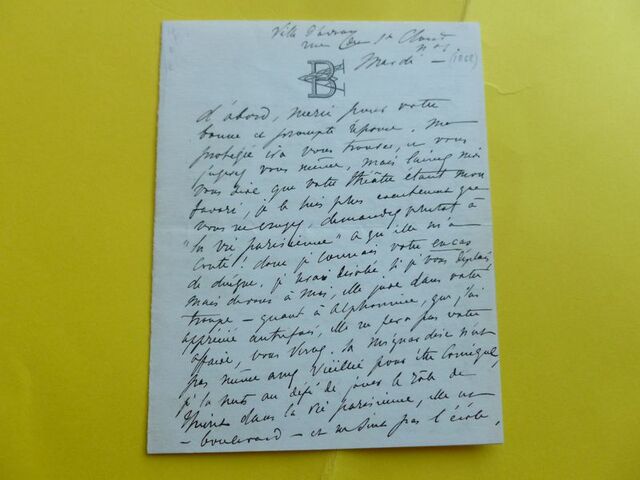 Ville d'avray
rue de St Cloud
n° 1
Mardi — (1868)
d'abord, merci pour votre
bonne et prompte réponse, ma
protégée ira vous trouver, et vous
jugerez vous même, mais laissez moi
vous dire que votre théâtre étant mon
favori, je le suis plus exactement que
vous ne croyez, demandez plutôt à
"la vie parisienne" ce qu'elle m'a
conté! donc je connais votre
de duègne, je serais désolée si je vous déplais,
mais de vous à moi, elle joue dans votre
troupe — quant à Alphonsine, que j'ai
apprécié autrefois, elle ne fera pas votre
affaire, vous verrez. Sa mignardise n'est
pas même assez vieillie pour être comique,
je la mets au défi de jouer le rôle de
dans la vie parisienne, elle est
— boulevard — et ne sent pas l'école,